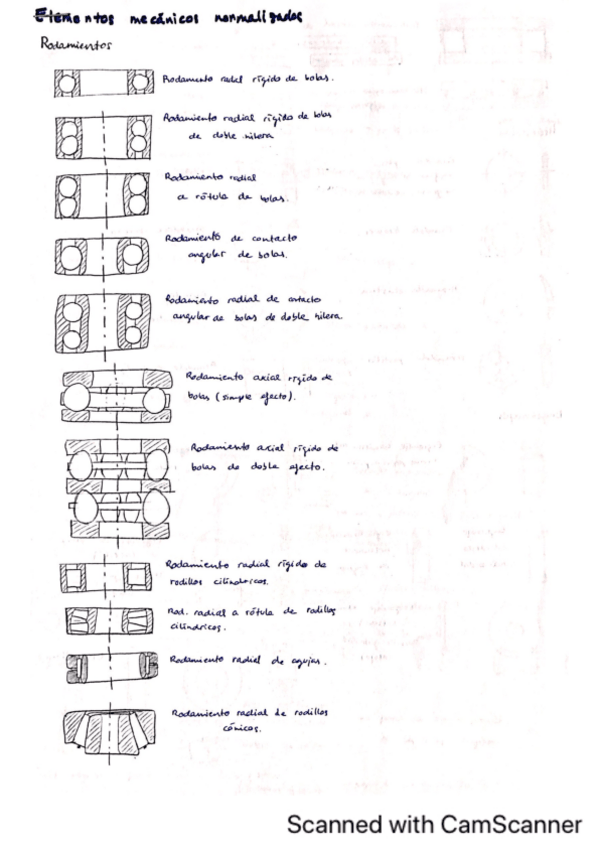 Elementos mecánicos normalizados
Rodamientos
Rodamiento radial rígido de bolas.
Rodamiento radial rígido de bolas
de doble hilera
Rodamiento radial
a rótula de bolas.
Rodamiento de contacto
angular de bolas.
Rodamiento radial de contacto
angular de bolas de doble hilera.
Rodamiento axial rígido de
bolas (simple efecto).
Rodamiento axial rígido de
bolas de doble efecto.
Rodamiento radial rígido de
rodillos cilíndricos.
Rod. radial a rótula de rodillos
cilíndricos.
Rodamiento radial de agujas.
Rodamiento radial de rodillos
cónicos.
Scanned with CamScanner